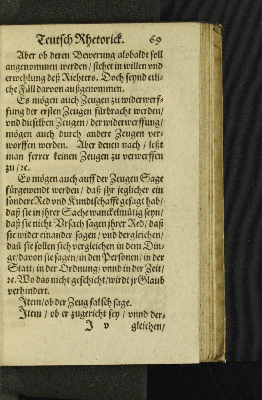 Teutsch Rhetorick. 69
Aber ob deren Bewerung alsbaldt soll
angenommen werden / stehet in willen vnd
erwehlung deß Richters. Doch seynd etli-
che Fäll daruon außgenommen.
Es mögen auch Zeugen zu widerwerf-
fung der ersten Zeugen fürbracht werden /
vnd dieselben Zeugen / der widerwerffung /
mögen auch durch andere Zeugen ver-
worffen werden. Aber denen nach / leßt
man ferrer keinen Zeugen zu verwerffen
zu / ꝛc.
Es mögen auch auff der Zeugen Sage
fürgewendt werden / daß jhr jeglicher ein
sondere Red vnd Kundtschafft gesagt hab /
daß sie in jhrer Sache wanckelmütig seyn /
daß sie nicht Vrsach sagen jhrer Red / daß
sie wider einander sagen / vnd dergleichen /
dañ sie sollen sich vergleichen in dem Din-
ge / dauon sie sagen / in den Personen / in der
Statt / in der Ordnung / vnnd in der Zeit /
ꝛc. Wo das nicht geschicht / wirdt jr Glaub
verhindert.
Item / ob der Zeug falsch sage.
Item / ob er zugericht sey / vnnd der-
J v gleichen /